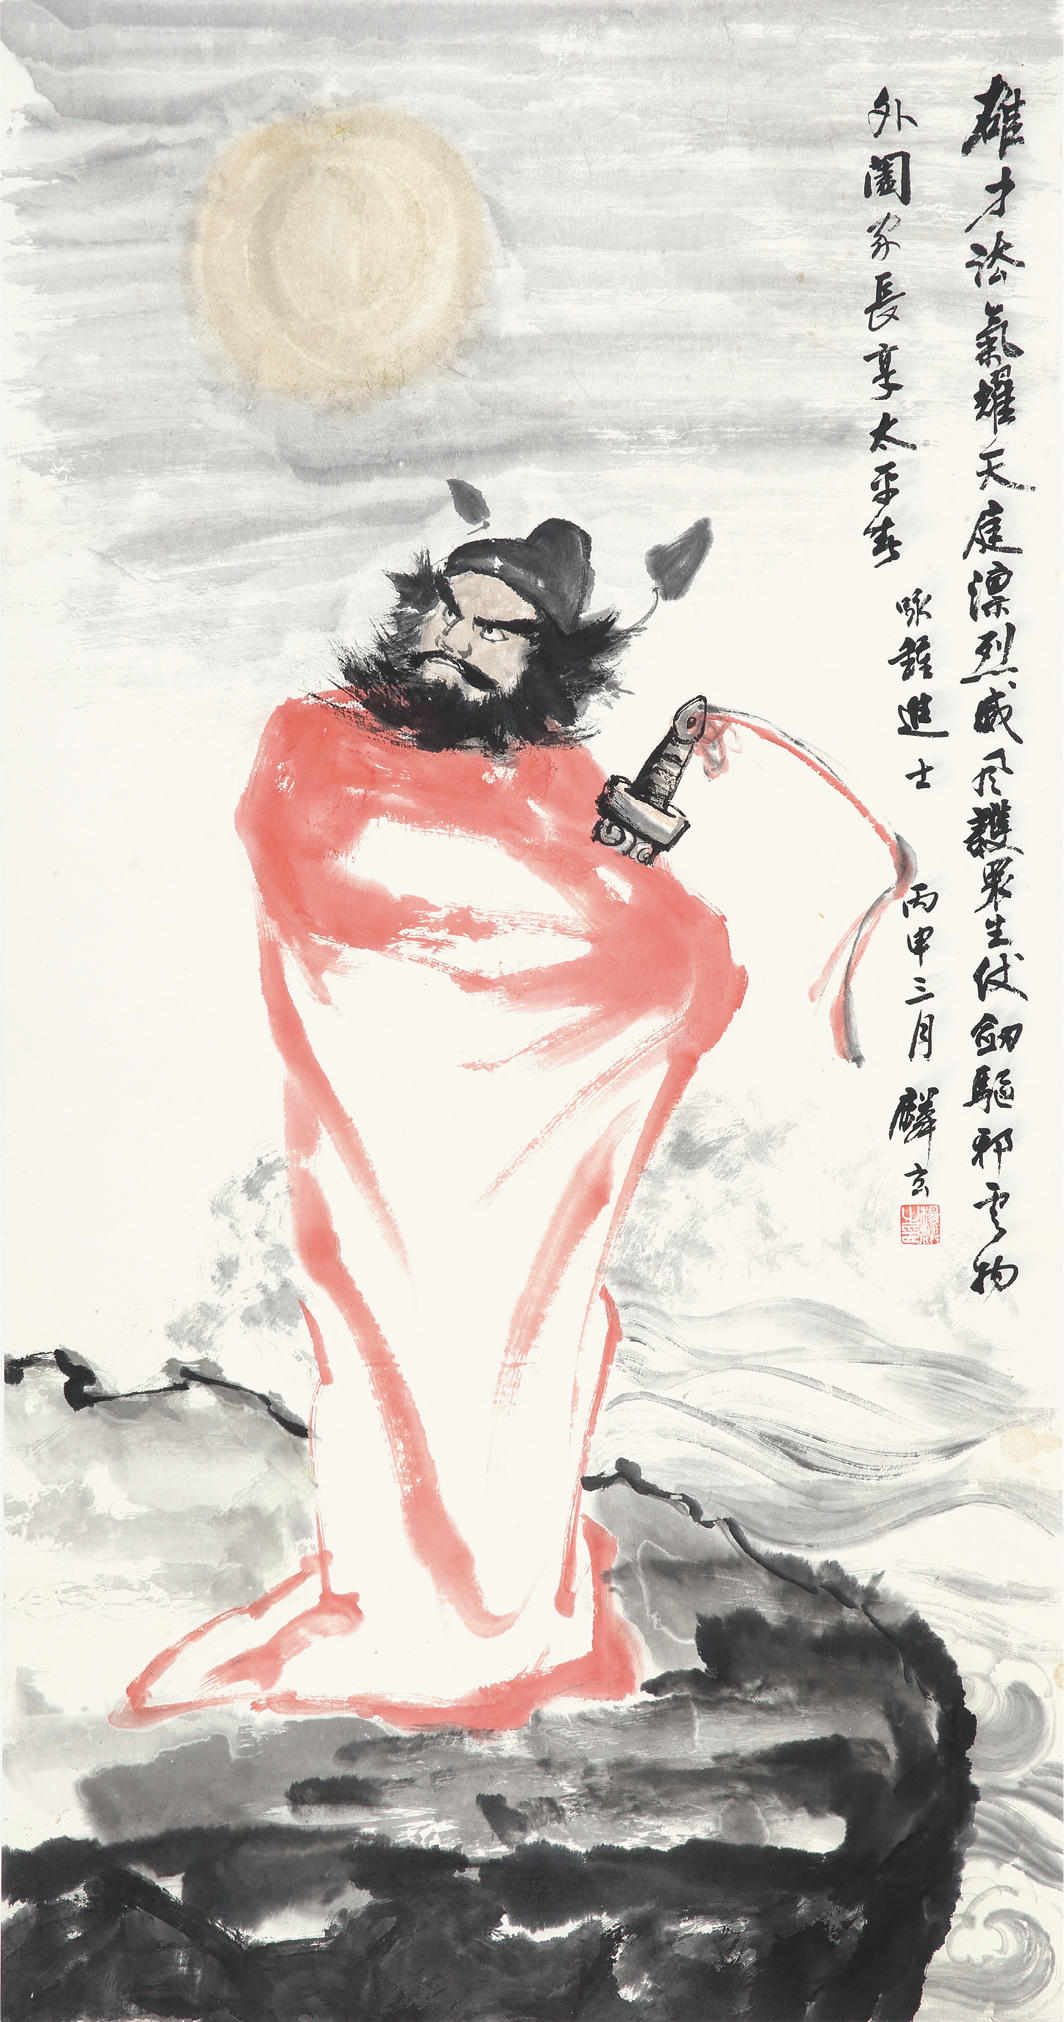 雄才浩氣耀天庭凜烈威風護眾生伏劍驅邪雲物
外闔家長享太平春
咏鍾進士
丙申三月 麟玄